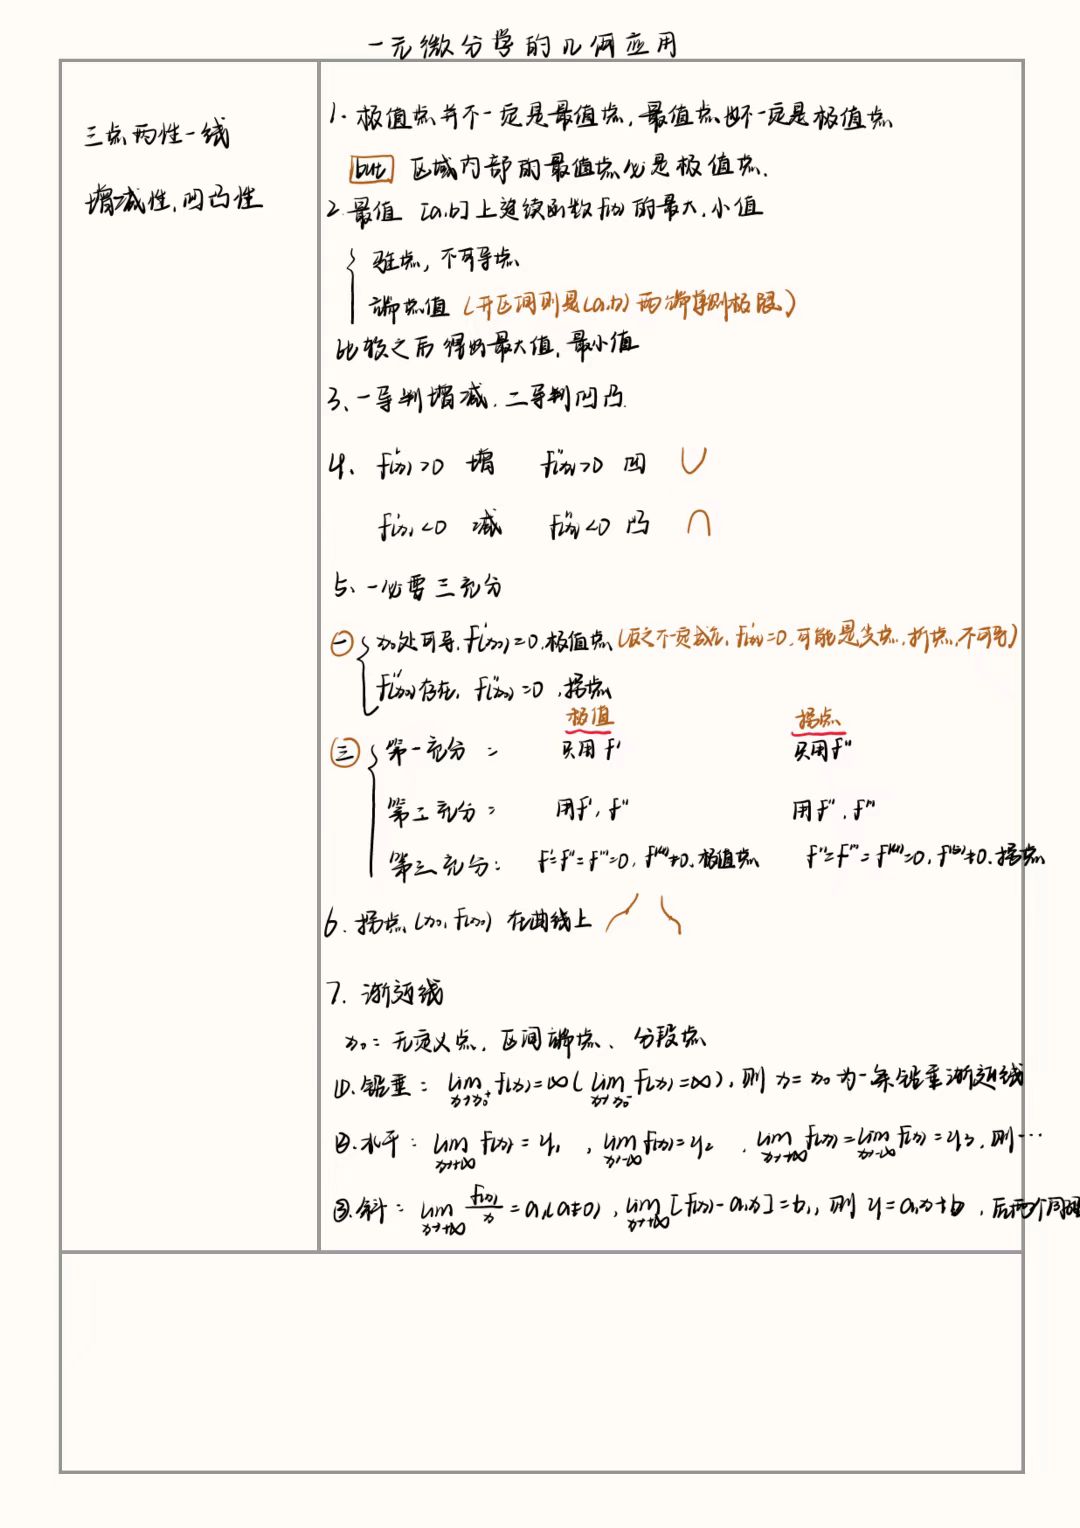 一元微分学的几何应用
三点两性一线
增减性,凹凸性
1. 极值点并不一定是最值点,最值点也不一定是极值点
but 区域内部的最值点必是极值点.
2. 最值 [a,b]上连续函数f(x)的最大.小值
驻点, 不可导点
端点值 (开区间则是(a,b)两端单侧极限)
比较之后得出最大值, 最小值
3、一导判增减. 二导判凹凸.
4、 f'(x)>0 增 f''(x)>0 凹 ∪
f'(x)<0 减 f''(x)<0 凸 ∩
5、一必要三充分
一 x₀处可导, f'(x₀)=0.极值点 (反之不一定成立, f'(x₀)=0. 可能是尖点.折点.不可导)
f''(x₀)存在, f''(x₀)=0 , 拐点
极值 拐点
三 第一充分: 只用f' 只用f''
第二充分: 用f', f'' 用f'', f'''
第三充分: f'=f''=f'''=0, f⁽⁴⁾≠0.极值点 f''=f'''=f⁽⁴⁾=0, f⁽⁵⁾≠0.拐点
6. 拐点 (x₀, f(x₀)) 在曲线上
7. 渐近线
x₀: 无定义点. 区间端点、分段点
①.铅垂: lim x→x₀⁺ f(x)=∞ ( lim x→x₀⁻ f(x)=∞), 则 x=x₀ 为一条铅垂渐近线
②.水平: lim x→+∞ f(x)=y₁ , lim x→-∞ f(x)=y₂ , lim x→+∞ f(x)=lim x→-∞ f(x)=y₃, 则…
③.斜: lim x→+∞ f(x)/x = a₁(a≠0), lim x→+∞ [f(x)-a₁x]=b₁, 则 y=a₁x+b₁, 后两个同理